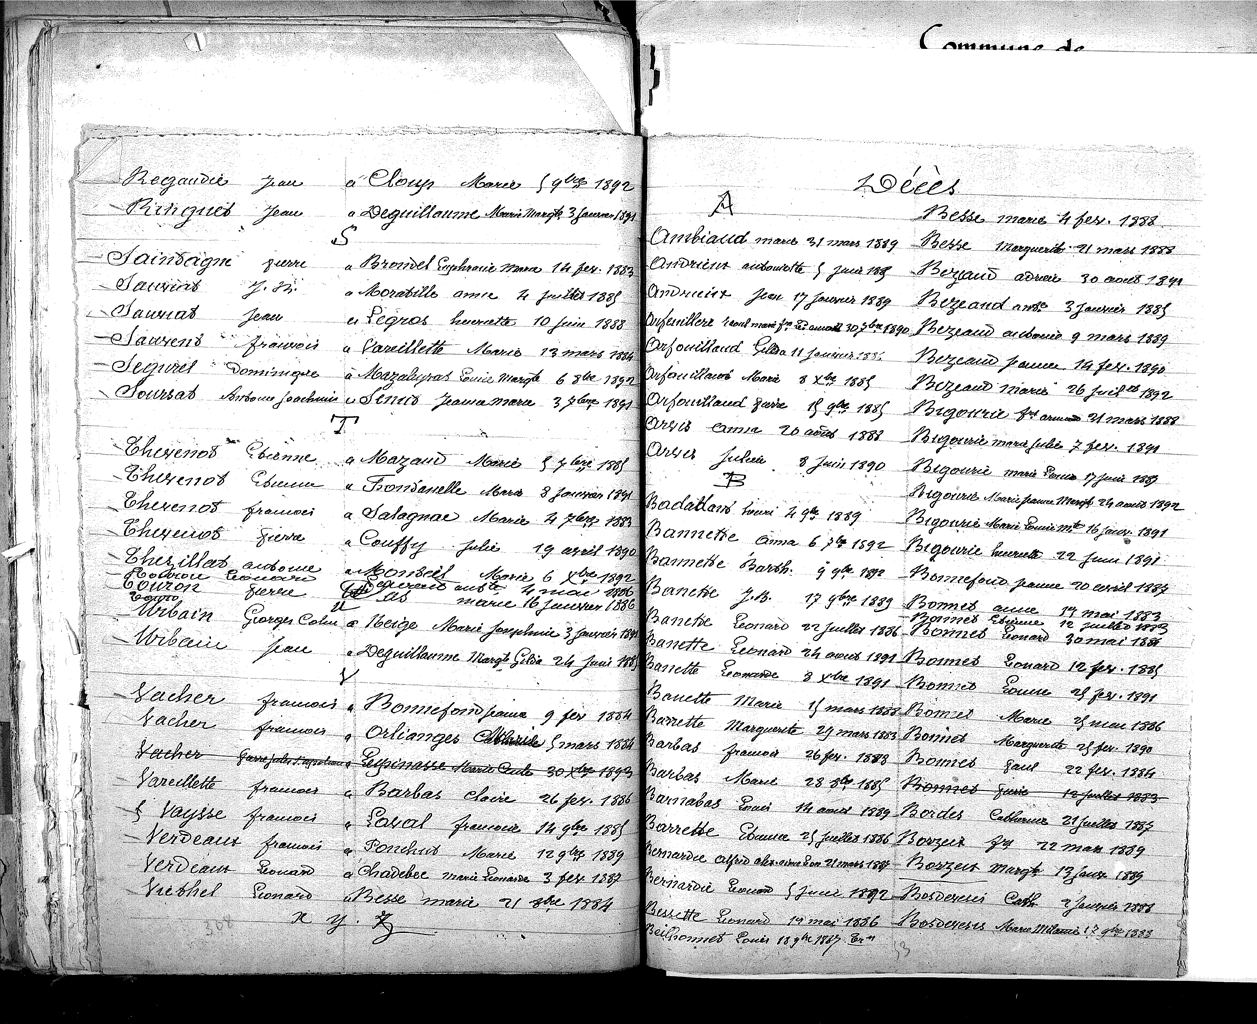 Commune de
Regaudie Jean a Cloup Marie 5 9bre 1892
Ringuet Jean a Deguillaume Marie Margte 3 janvier 1891
S
Saintagne pierre a Brondel Euphrasie Marie 14 fev. 1883
J. Bte a Morabille anne 4 juillet 1885
Sauriat Jean a Legros henriette 10 juin 1888
françois a Vareillette Marie 13 mars 1884
Segurel Dominique a Mazaleyras Louise Margte 6 8bre 1892
Soursat Antoine Joachim a Jeanne Marie 3 7bre 1891
T
Thevenot Etienne a Mazaud Marie 5 7bre 1885
Thevenot Etienne a Fontanelle Marie 8 janvier 1891
Thevenot françois a Salagnac Marie 4 7bre 1883
Thevenot pierre a Couffy Julie 19 avril 1890
Thezillat antoine a Monteil Marie 6 Xbre 1892
Leonard 4 mai 1886
Touron pierre marie 16 janvier 1886
U
Urbain Georges Colin a Neige Marie Josephine 3 janvier 1891
Urbain Jean a Deguillaume Margte Gilda 24 juin 1885
V
Vacher francois a Bonnefond jeanne 9 fev 1884
Vacher francois a Orlianges Catherine 5 mars 1884
Vacher Pierre Jules Napoleon a Espinasse Marie 30 Xbre 1893
Vareillette francois a Barbas Claire 26 fev. 1886
Vaysse francois a Laval francoise 14 9bre 1885
Verdeaux francois a Ponchut Marie 12 9bre 1889
Verdeaux Leonard a Chadebec marie Leonarde 3 fev 1887
Viethel Leonard a Besse marie 21 8bre 1884
x y. Z
308
Décès
A
Ambiaud marie 31 mars 1889
Andrieux 5 juin 1885
Andrieux Jean 17 janvier 1889
Orfeuillere 30 7bre 1890
Orfouillaud Gilda 11 janvier
Orfouillaud Marie 8 Xbre 1885
Orfouillaud pierre 15 9bre 1885
Arvis anna 20 août 1888
Arvis Julien 8 juin 1890
B
Badaillard henri 4 9bre 1889
Bannette anna 6 7bre 1892
Bannette Barth. 9 9bre 1892
Banette J.B. 17 9bre 1889
Banette Leonard 22 juillet 1886
Banette Leonard 24 aout 1891
Banette Leonarde 3 Xbre 1891
Banette Marie 15 mars 1888
Banette Marguerite 29 mars 1883
Barbas francois 26 fev. 1888
Barbas Marie 28 8bre 1885
Barnabas Louis 14 aout 1889
Barrette Etienne 25 juillet 1886
Bernardie alfred 21 mars 1887
Bernardie Leonard 5 juin 1892
Bessette Leonard 14 mai 1886
Beilhonnet Louis 18 9bre 1887
Besse marie 4 fev. 1888
Besse Marguerite 21 mars 1888
Bezeaud adrien 30 aout 1891
Bezeaud antne 3 janvier 1885
Bezeaud antoine 9 mars 1889
Bezeaud jeanne 14 fev. 1890
Bezeaud marie 26 juillet 1892
Bigourie fois armand 21 mars 1888
Bigourie marie julie 7 fev. 1891
Bigourie marie Louise 17 juin 1887
Bigourie Marie jeanne Margte 24 aout 1892
Bigourie Marie Louise Mte 16 janv. 1891
Bigourie henriette 22 juin 1891
Bonnefond jeanne 20 avril 1887
Bonnet anne 14 mai 1883
Bonnet Etienne 12 juillet 1883
Bonnet Leonard 30 mai 1886
Bonnet Leonard 12 fev. 1885
Bonnet Louise 25 fev. 1891
Bonnet Marie 25 mai 1886
Bonnet Marguerite 25 fev. 1890
Bonnet Paul 22 fev. 1884
Bonnet pierre 12 juillet 1883
Bordes Catherine 21 juillet 1887
Borzeix 22 mars 1889
Borzeix Margte 13 janv. 1889
Bosderesis Cathe 2 janvier 1888
Bosderesis Marie Mélanie 17 9bre 1883
53